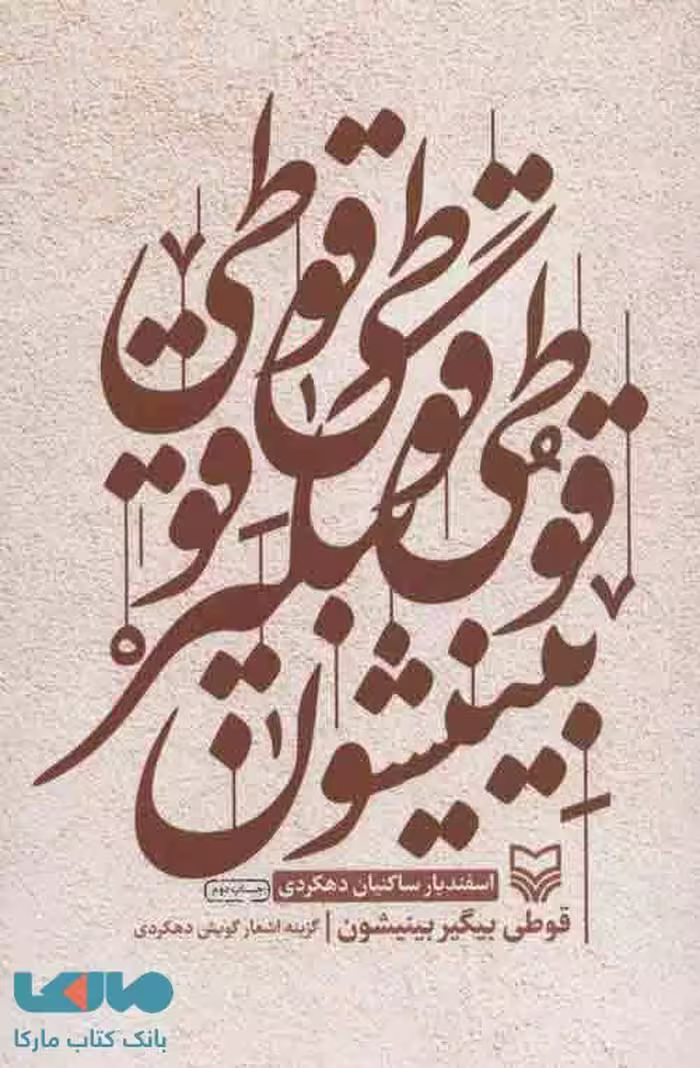 قوطی قوطی قوطی
بیگیر قو
بینیشون
اسفندیار ساکنیان دهکردی چاپ دوم
قوطی بیگیر بینیشون | گزینه اشعار گویش دهکردی
مارکا
بانک کتاب مارکا